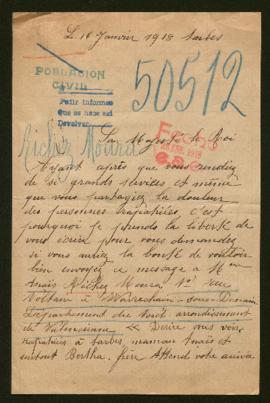 Le 16 Janvier 1918 Tarbes
POBLACION
CIVIL
50512
Pedir informes
Que se hace así
Devolver
Sa Majesté le Roi
Ayant après que vous rendiez
de si grands services et même
que vous partagiez la douleur
des personnes rapatriées, c'est
pourquoi je prends la liberté de
vous écrire pour vous demander
si vous auriez la bonté de vouloir
bien envoyer ce message à Mme
Anaïs Richez Moura rue
Voltaire à
Département du Nord arrondissement
de Valenciennes
rapatriées à Tarbes, maman Anaïs et
surtout Bertha. frère attend votre arrivée